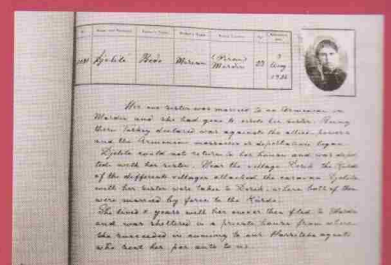 1131 Djelile Bedo Mariam (Viran) Mardin 23 9 Aug 1926
Her one sister was married to an Armenian in
Mardin and she had gone to visit her sister. Being
there Turkey declared war against the allied powers
and the Armenian massacres or deportation began.
Djelile could not return to her house and was depor
ted with her sister. Near the village the Kurds
of the different villages attacked the caravan Djelile
with her sister were taken to where both of them
were married by force to the Kurds.
She lived years with her owner then fled to Mardin
and was sheltered in a private house from where
she succeeded in running to our agents
who sent her per auto to us.